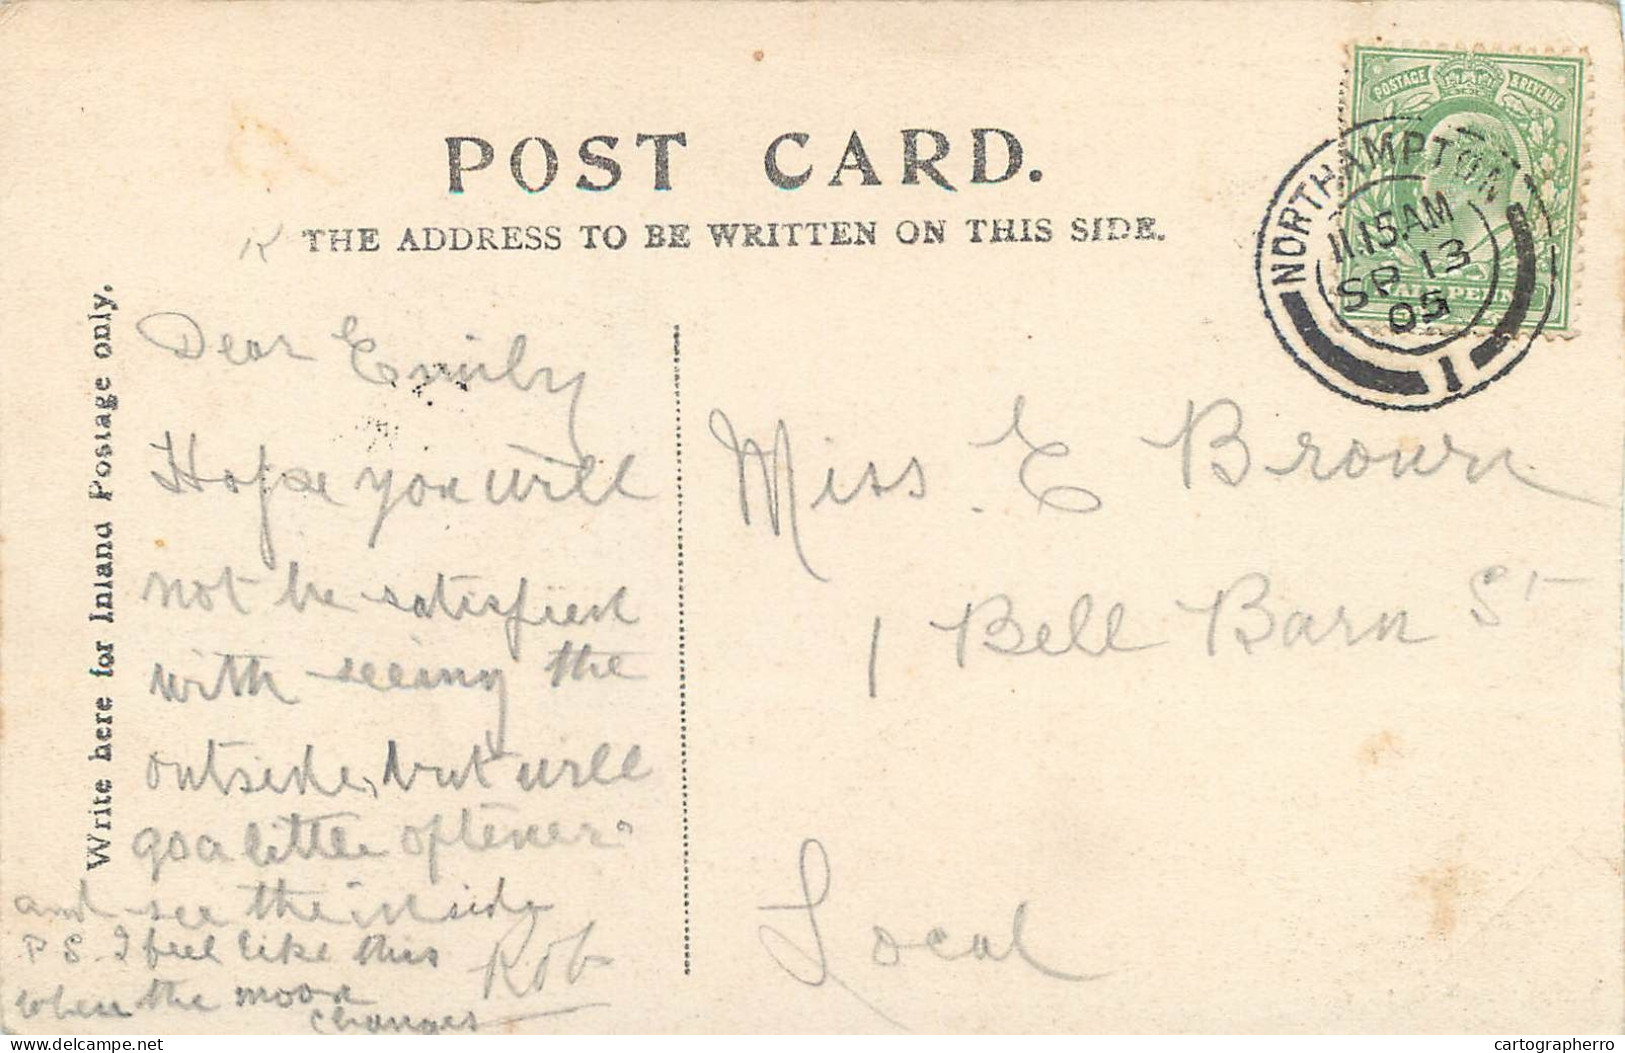 POST CARD.
THE ADDRESS TO BE WRITTEN ON THIS SIDE.
Write here for Inland Postage only.
POSTAGE & REVENUE
HALFPENNY
NORTHAMPTON
11.15AM
SP 13
05
1
Dear Emily
Hope you will
not be satisfied
with seeing the
outside, but will
go a little oftener
and see the inside
Rob
P S. I feel like this
when the mood
changes
Miss E Brown
1 Bell Barn St
Local
delcampe.net
cartographerro